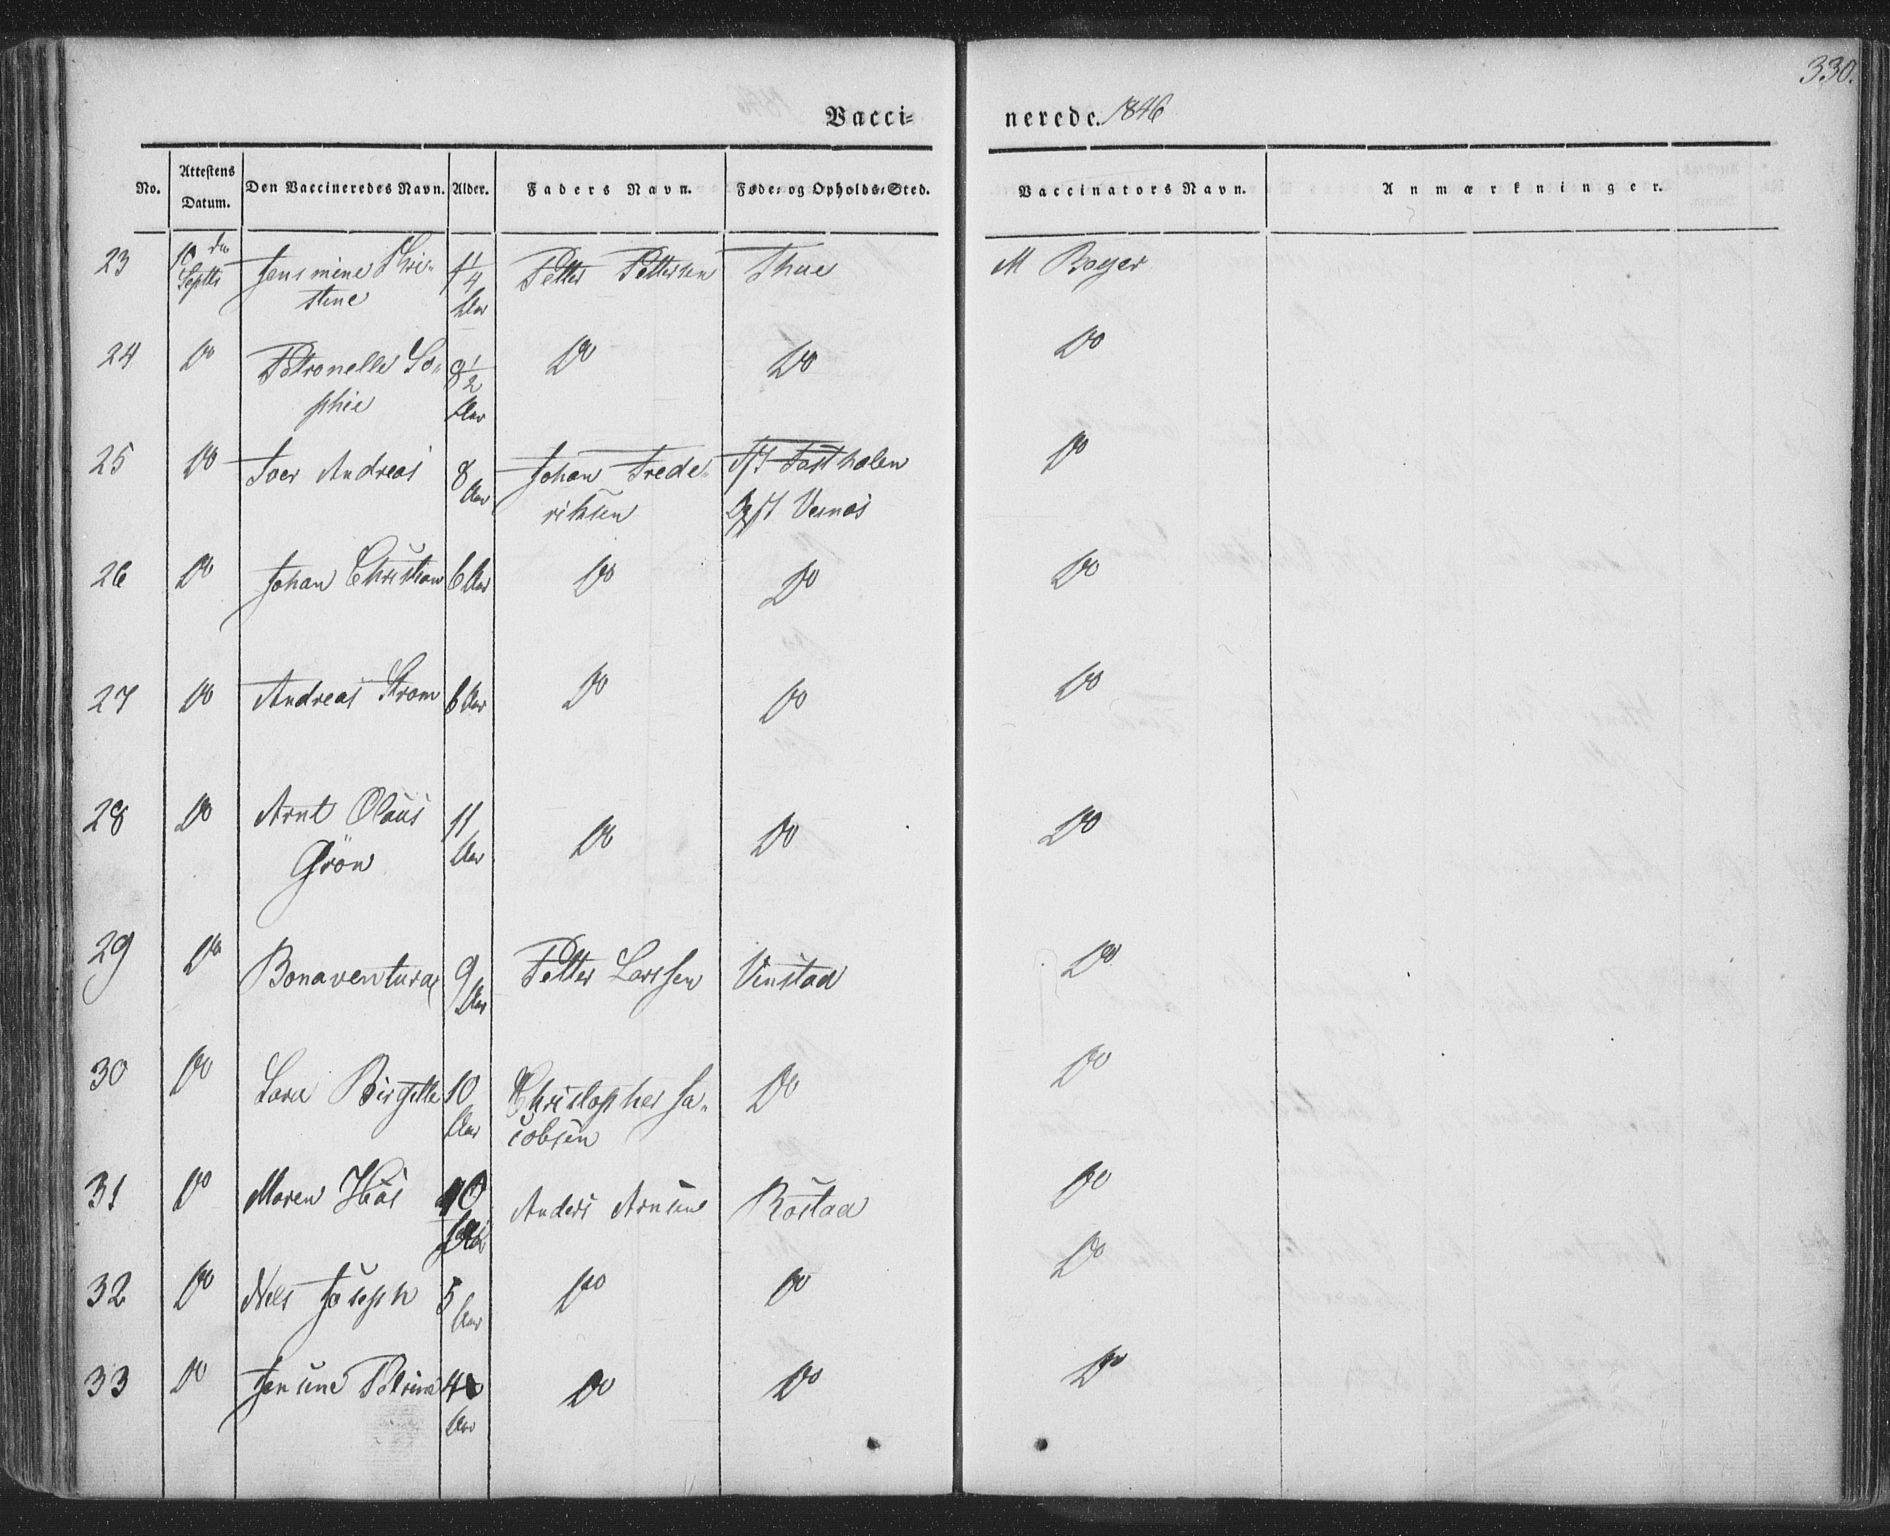 330.
Vacci- nerede. 1846
No. Attestens Datum. Den Vaccineredes Navn. Alder. Faders Navn. Føde- og Opholds-Sted. Vaccinators Navn. Anmærkninger.
23 10de Septb Jensmine Chri- 1/4 Petter Pettersen Thue M Boyer
stine Aar
24 Do Petronelle So- 8 1/2 Do Do Do
phie Aar
25 Do Joer Andreas 8 Aar Johan Frede- Do
riksen Opst Vernæs
26 Do Johan Christian 6 Aar Do Do Do
27 Do Andreas Strom 6 Aar Do Do Do
28 Do Arnt Olaus 11 Do Do Do
Grön Aar
29 Do Bonaventura 9 Aar Petter Larssen Vinstad Do
30 Do Lara Birgitte 10 Christopher Ja- Do Do
Aar cobsen
31 Do Maren 10 Anders Arnsen Rostad Do
32 Do Nels Joseph 5 Aar Do Do Do
33 Do Jensine Petrine 4 Do Do Do
Aar